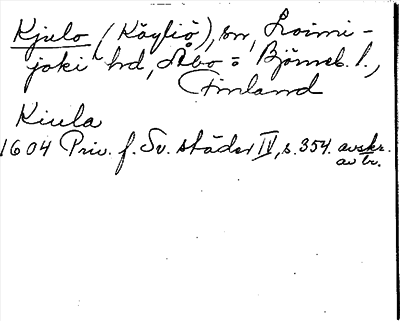 Kjulo (Köyliö), sn, Loimi-
joki hd, Åbo = Björneb. l.,
Finland
Kiula
1604 Priv. f. Sv. städer IV, s. 354. avskr.
av tr.